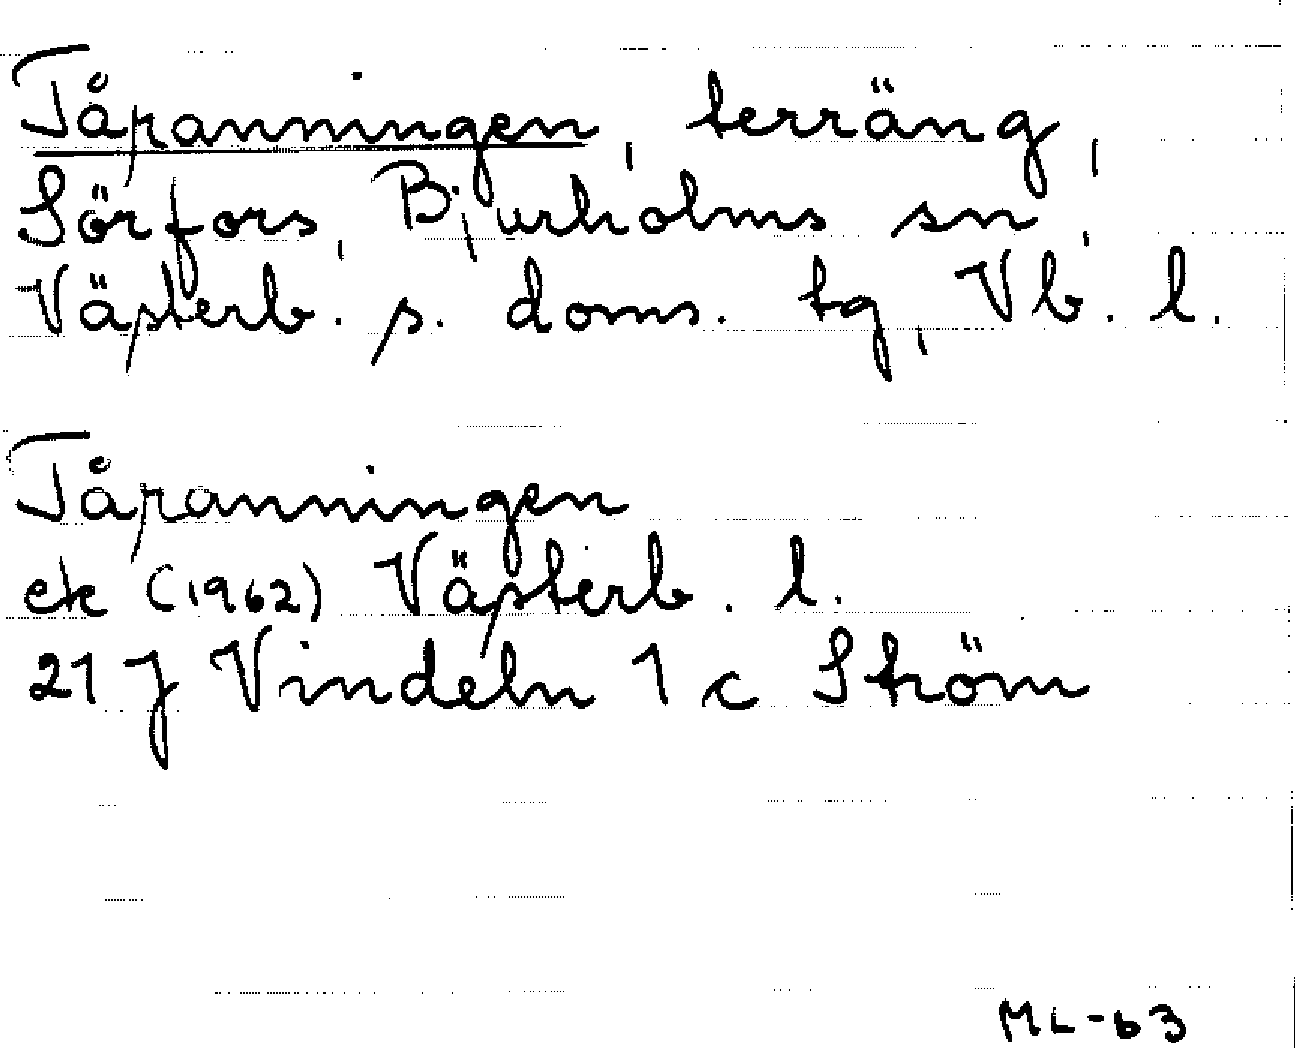 Tåpanningen, terräng,
Sörfors, Bjurholms sn,
Västerb. s. doms. tg, Vb. l.
Tåpanningen
ek (1962) Västerb. l.
21 J Vindeln 1 c Ström
ML-63